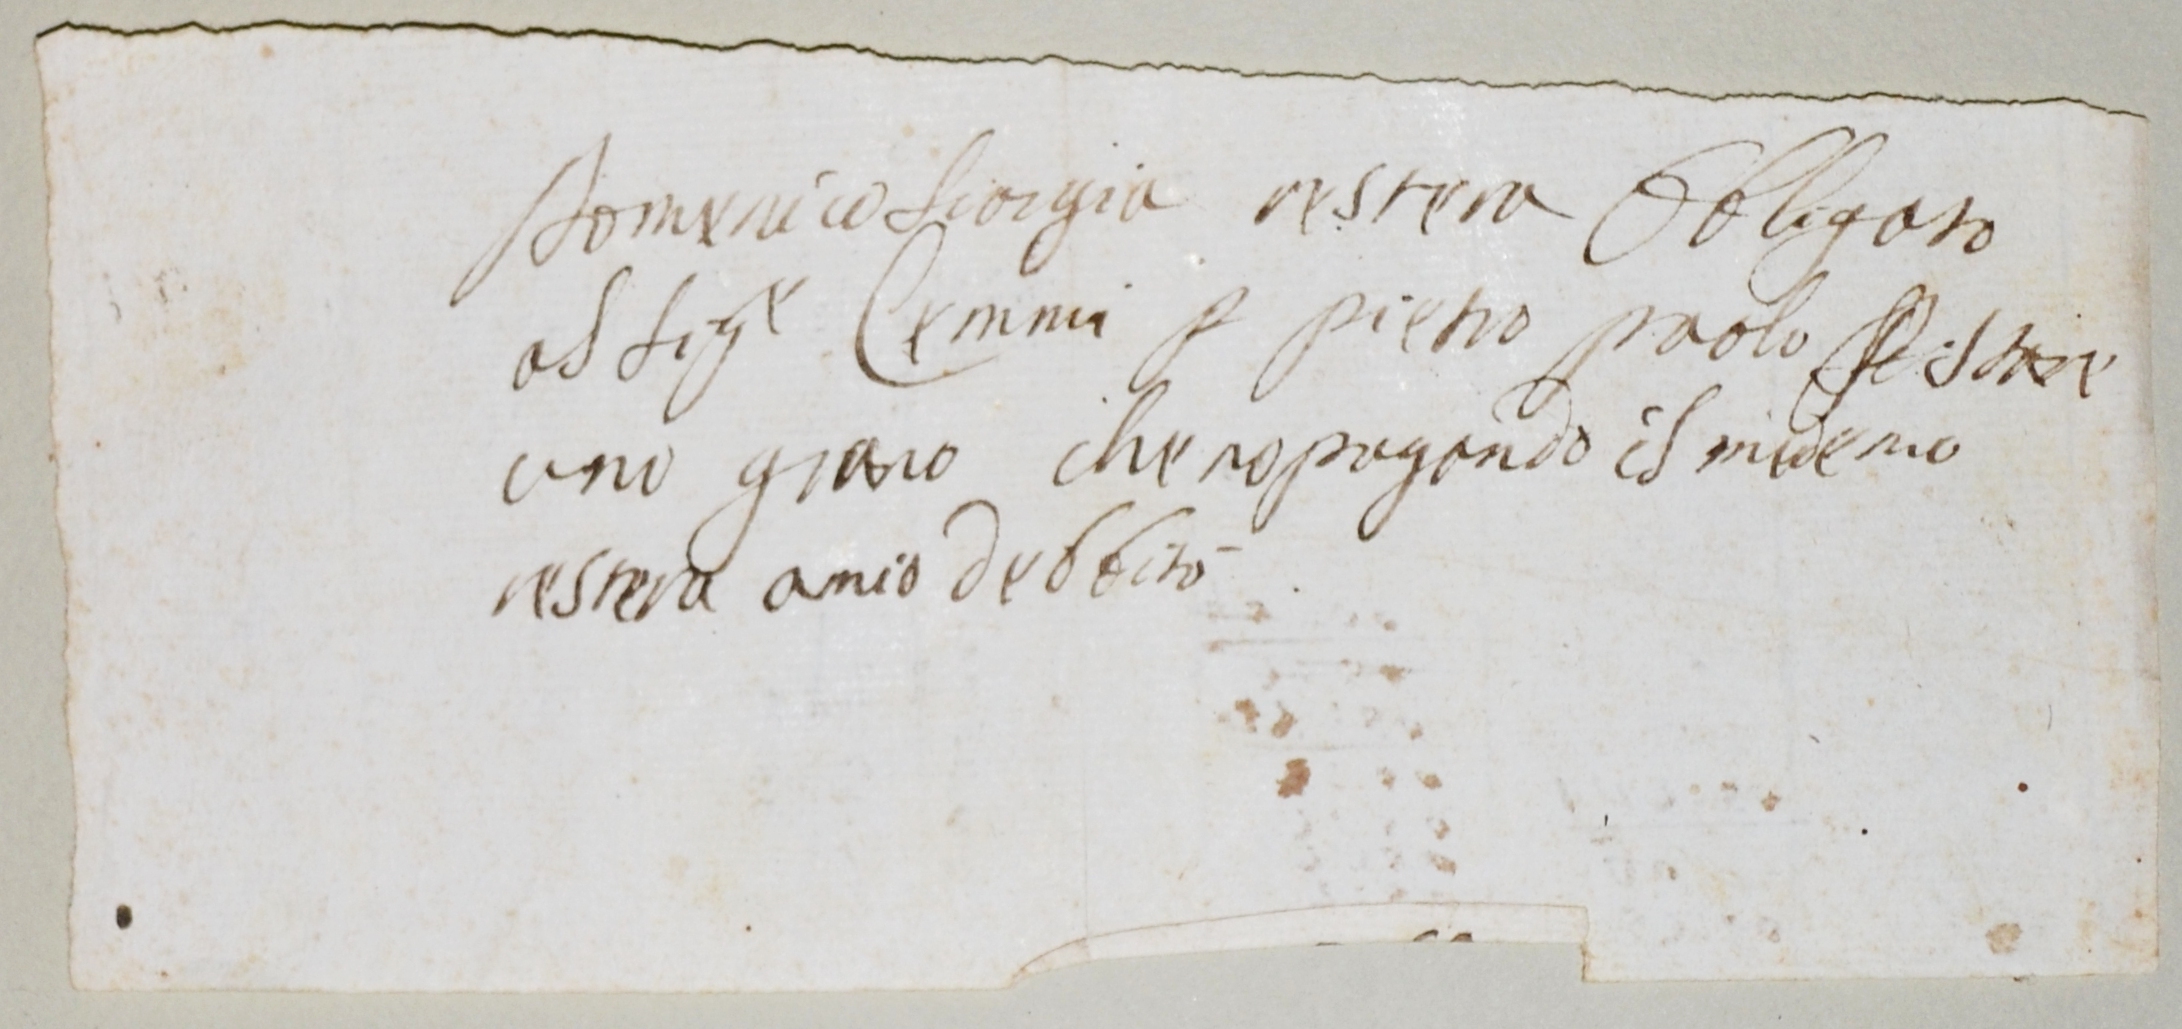 Domenico Giorgia restera Obbligato
al Sig.e Cemmi p pietro paolo
uno grano che no pagando il midemo
restera a mio debbito